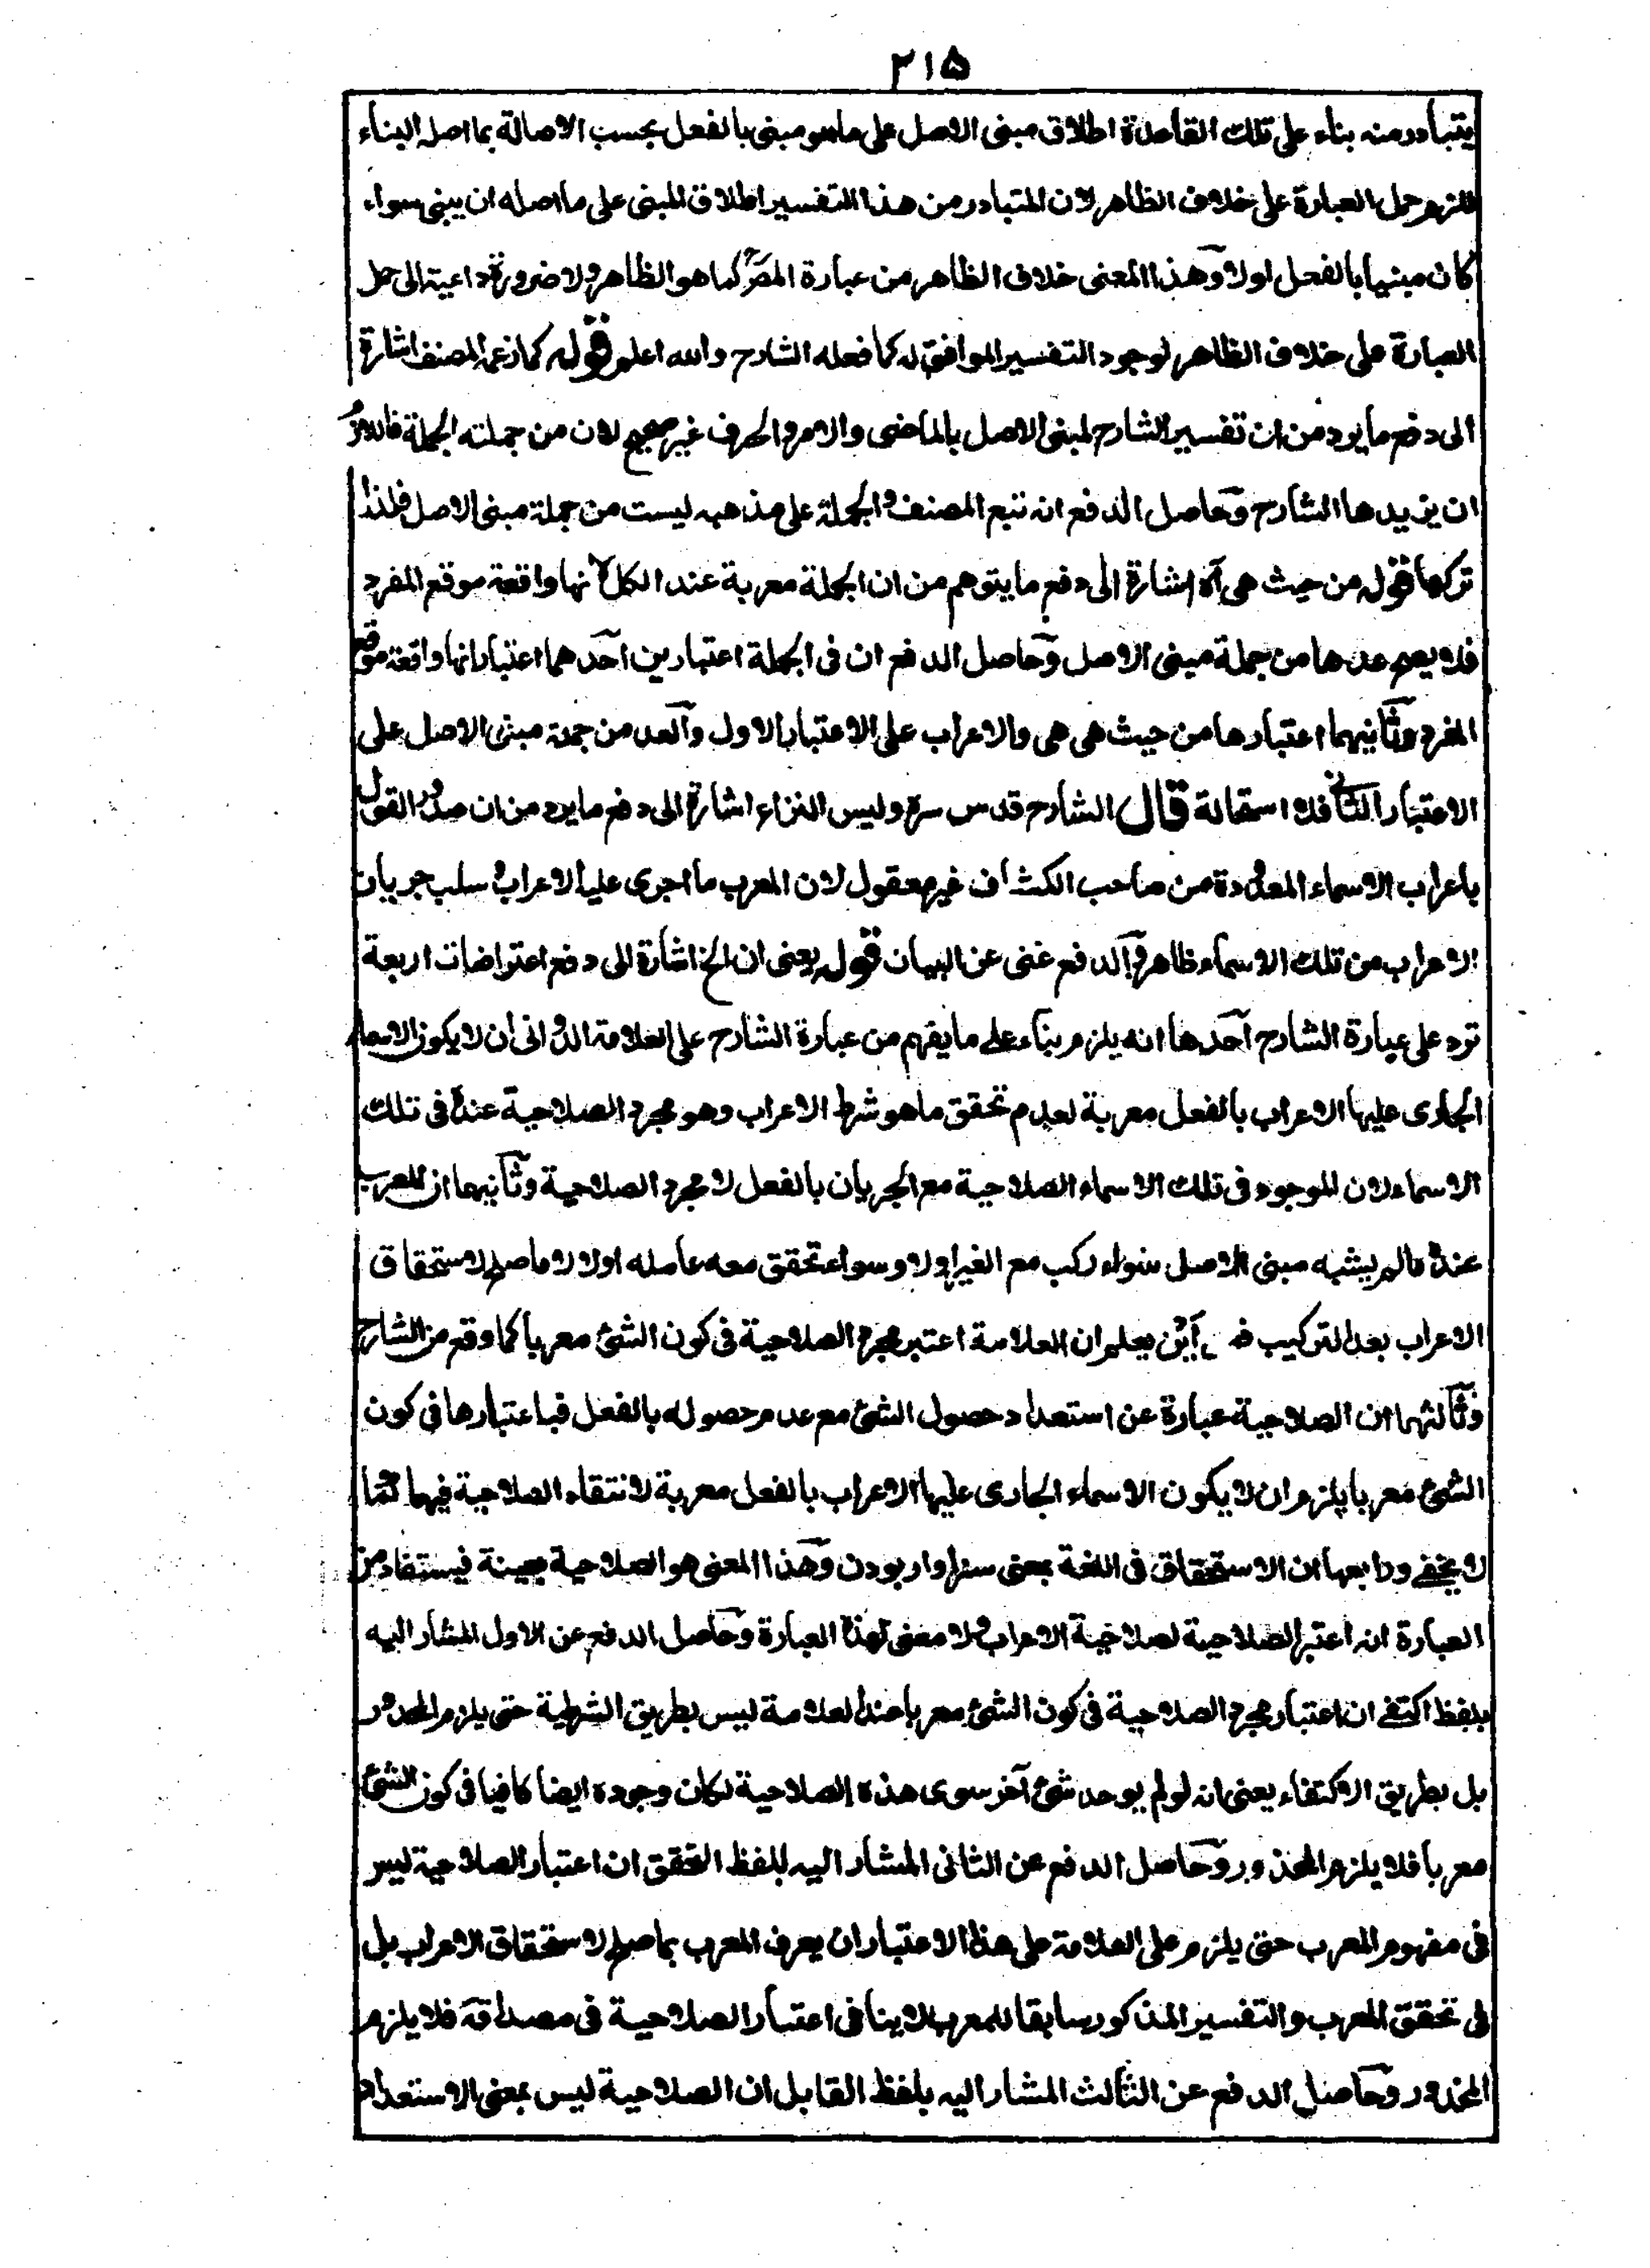 ٢١٥
يتبادر منه بناء على تلك القاعدة اطلاق مبنى الاصل على ماهو مبنى بالفعل بحسب الاصالة بما اصله البناء
للزم حمل العبارة على خلاف الظاهر لان المتبادر من هذا التفسير اطلاق المبنى على ما اصله ان يبنى سواء
كان مبنيا بالفعل اولا وهذا المعنى خلاف الظاهر من عبارة المصر كما هو الظاهر ولا ضرورة داعية الى حمل
العبارة على خلاف الظاهر لوجود التفسير الموافق له كما فعله الشارح والله اعلم قوله كما زعمه المصنف اشارة
الى دفع ما يرد من ان تفسير الشارح لمبنى الاصل بالماضى والامر والحرف غير صحيح لان من جملته الجملة فاللازم
ان يزيدها الشارح وحاصل الدفع انه تبع المصنف والجملة على مذهبه ليست من جملة مبنى الاصل فلذا
تركها قوله من حيث هى آه اشارة الى دفع ما يتوهم من ان الجملة معربة عند الكل لانها واقعة موقع المفرد
فلا يصح عدها من جملة مبنى الاصل وحاصل الدفع ان فى الجملة اعتبارين احدهما اعتبار انها واقعة موقع
المفرد وثانيهما اعتبارها من حيث هى هى والاعراب على الاعتبار الاول والعد من جملة مبنى الاصل على
الاعتبار الثانى فلا استحالة قال الشارح قدس سره وليس النزاع اشارة الى دفع ما يرد من ان صدور القول
باعراب الاسماء المعدودة من صاحب الكشاف غير معقول لان المعرب ما اجرى عليه الاعراب و سلب جريان
الاعراب من تلك الاسماء ظاهر والدفع غنى عن البيان قوله يعنى ان الخ اشارة الى دفع اعتراضات اربعة
ترد على عبارة الشارح احدها انه يلزم بناء على ما يفهم من عبارة الشارح على العلامة الدوانى ان لا يكون الاسماء
الجارى عليها الاعراب بالفعل معربة لعدم تحقق ماهو شرط الاعراب وهو مجرد الصلاحية عنده فى تلك
الاسماء لان الموجود فى تلك الاسماء الصلاحية مع الجريان بالفعل لا مجرد الصلاحية وثانيهما ان المعرب
عنده مالم يشبه مبنى الاصل سواء ركب مع الغير اولا وسواء تحقق معه عامله اولا لا ما صلح لاستحقاق
الاعراب بعد التركيب اين يعلم ان العلامة اعتبر مجرد الصلاحية فى كون الشئ معربا كما وقع من الشارح
وثالثهما ان الصلاحية عبارة عن استعداد حصول الشئ مع عدم حصوله بالفعل فباعتبارها فى كون
الشئ معربا يلزم ان لا يكون الاسماء الجارى عليها الاعراب بالفعل معربة لانتفاء الصلاحية فيها كما
لا يخفى ورابعها ان الاستحقاق فى اللغة بمعنى سزاوار بودن وهذا المعنى هو الصلاحية بعينة فيستفاد من
العبارة انه اعتبر الصلاحية لصلاحية الاعراب ولا معنى لهذه العبارة وحاصل الدفع عن الاول المشار اليه
بلفظ اكتفى ان اعتبار مجرد الصلاحية فى كون الشئ معربا عند العلامة ليس بطريق الشرطية حتى يلزم المحذور
بل بطريق الاكتفاء يعنى انه لو لم يوجد شئ آخر سوى هذه الصلاحية لكان وجوده ايضا كافيا فى كون الشئ
معربا فلا يلزم المحذور وحاصل الدفع عن الثانى المشار اليه بلفظ التحقق ان اعتبار الصلاحية ليس
فى مفهوم المعرب حتى يلزم على العلامة على هذا الاعتبار ان يعرف المعرب بما صلح لاستحقاق الاعراب بل
فى تحقق المعرب والتفسير المذكور سابقا للمعرب لا ينافى اعتبار الصلاحية فى مصداقه فلا يلزم
المحذور وحاصل الدفع عن الثالث المشار اليه بلفظ القابل ان الصلاحية ليس بمعنى الاستعداد